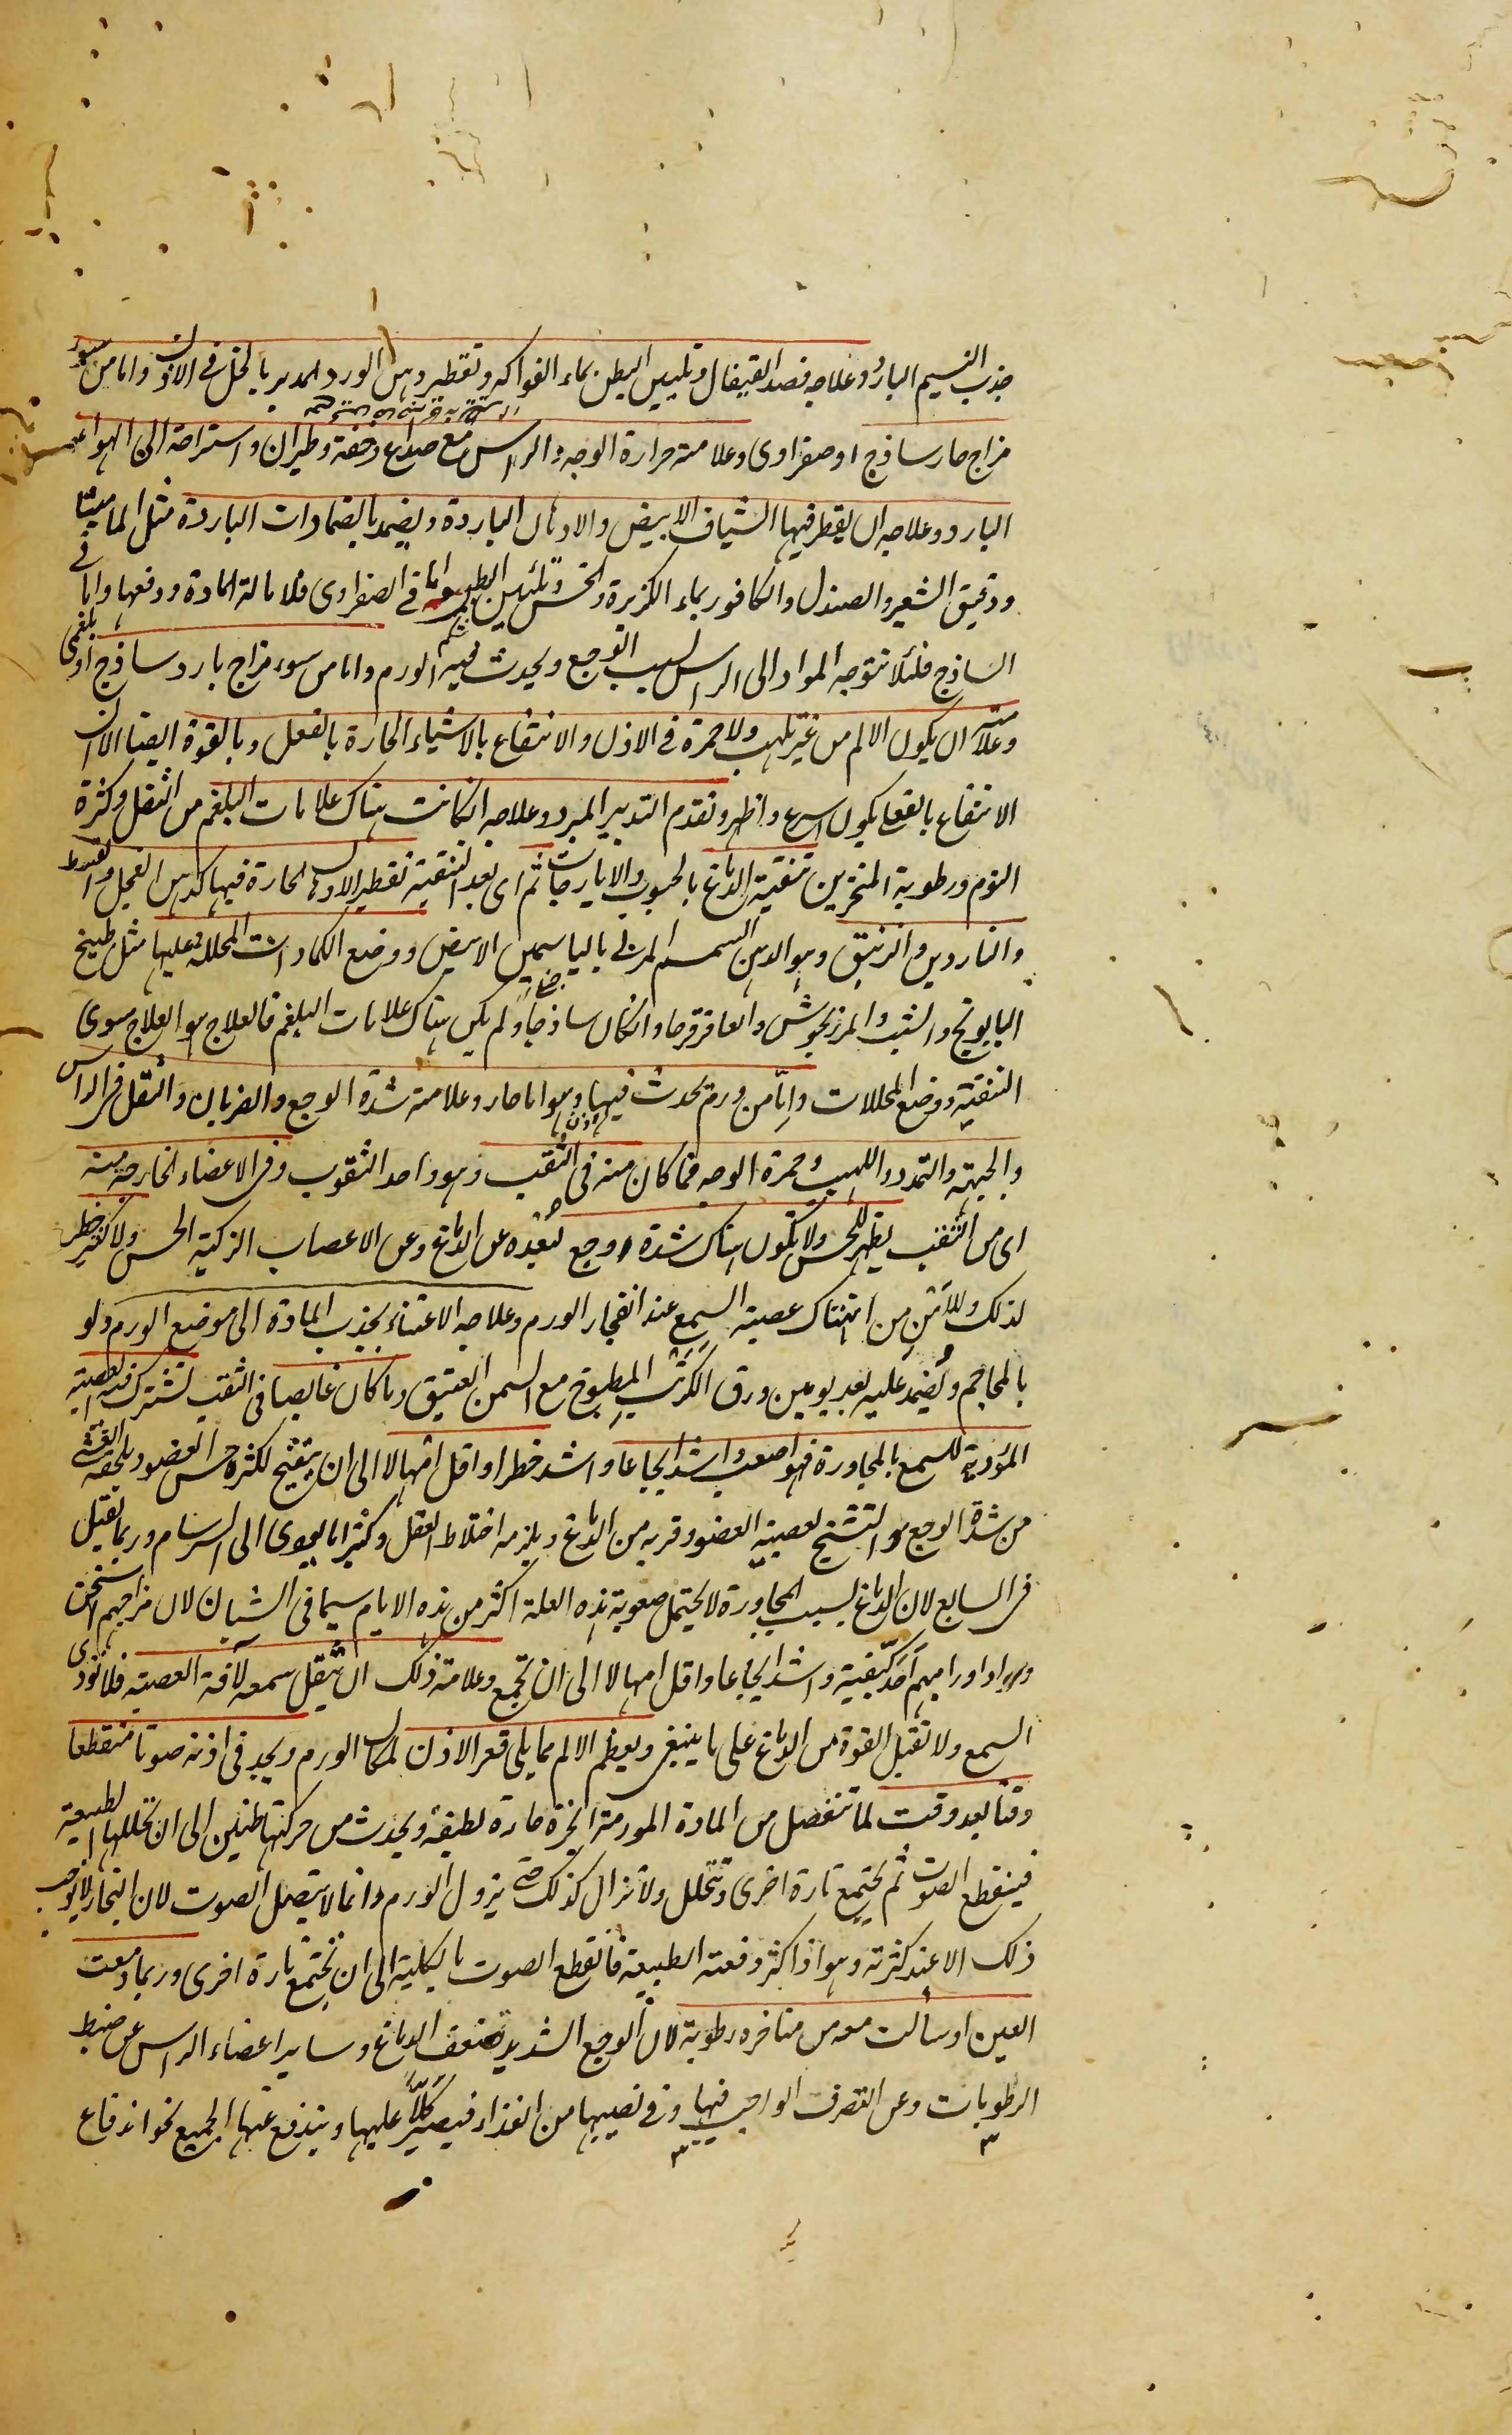 جذب النسيم البارد وعلاجه فصد القيفال وتليين البطن بماء الفواكه وتقطير دهن الورد المدبر بالخل في الاذن واما من سوء
مزاج حار ساذج او صفراوى وعلامته حرارة الوجه والراس مع صداع وخفة وطيران واستراحة الى الهواء
البارد وعلاجه ان يقطر فيها الشياف الابيض والادهان الباردة ويضمد بالضمادات الباردة مثل الماميثا
ودقيق الشعير والصندل والكافور بماء الكزبرة والخس وتليين الطبع اما في الصفراوى فلامالة المادة ودفعها واما في
الساذج فلئلا تتوجه المواد الى الراس بسبب الوجع ويحدث فيه الورم واما من سوء مزاج بارد ساذج او بلغمى
وعلامته ان يكون الالم من غير تلهب ولا حمرة في الاذن والانتفاع بالاشياء الحارة بالفعل وبالقوة ايضا الا ان
الانتفاع بالفعل يكون اسرع واظهر وتقدم التدبير المبرد وعلاجه ان كانت هناك علامات البلغم من الثقل وكثرة
النوم ورطوبة المنخرين تنقية الدماغ بالحبوب والايارجات ثم اى بعد التنقية تقطير الادهان الحارة فيها كدهن الفجل والقسط
والناردين والزنبق وهو الدهن السمسم المربى بالياسمين الابيض ووضع الكمادات المحللة عليها مثل طبيخ
البابونج والشبث والمرزنجوش والعاقرقرحا وان كان ساذجا ولم يكن هناك علامات البلغم فالعلاج هو العلاج سوى
التنقية ووضع المحللات واما من ورم يحدث فيها وهو اما حار وعلامته شدة الوجع والضربان والثقل في الراس
والجبهة والتمدد واللهيب وحمرة الوجه فما كان منه في الثقب وهو واحد الثقوب وفي الاعضاء الخارجة منه
اى من الثقب يظهر للحس ولا تكون هناك شدة وجع لبعده عن الدماغ وعن الاعصاب الزكية الحس ولا كثير خطر
لذلك وللامن من انهتاك عصبة السمع عند انفجار الورم وعلاجه الاعتناء بجذب المادة الى موضع الورم ولو
بالمحاجم ويضمد عليه بعد يومين ورق الكرنب المطبوخ مع السمن العتيق وما كان غايصا في الثقب تشترك فيه العصبة
المؤدية للسمع بالمجاورة فهو اصعب واشد ايجاعا واشد خطرا واقل امهالا الى ان يتقيح لكثرة حس العضو ويلحقه الغشى
من شدة الوجع والتشنج لعصبية العضو وقربه من الدماغ ويلزمه اختلاط العقل وكثيرا ما يودى الى السرسام وربما يقتل
في السابع لان الدماغ بسبب المجاورة لا يحتمل صعوبة هذه العلة اكثر من هذه الايام سيما في الشبان لان مزاجهم اسخن
واورامهم احد كيفية واشد ايجاعا واقل امهالا الى ان تجمع وعلامة ذلك ان يثقل سمعه لآفة العصبة فلا تؤدى
السمع ولا تقبل القوة من الدماغ على ما ينبغى ويعظم الالم مما يلى قعر الاذن لمكان الورم ويجد في اذنه صوتا متقطعا
وقتا بعد وقت لما تنفصل من المادة المورمة ابخرة حارة لطيفة ويحدث من حركتها طنين الى ان تحللها الطبيعة
فينقطع الصوت ثم يجتمع تارة اخرى وتتحلل ولا تزال كذلك حتى يزول الورم وانما لا يتصل الصوت لان البخار لا يوجب
ذلك الا عند كثرته وهو اذا كثر دفعته الطبيعة فانقطع الصوت بالكلية الى ان تجتمع تارة اخرى وربما دمعت
العين او سالت معه من مناخره رطوبة لان الوجع الشديد يضعف الدماغ وساير اعضاء الراس عن ضبط
الرطوبات وعن التصرف الواجب فيها وفي نصيبها من الغذاء فيصير كلا عليها ويندفع عنها الجميع نحو اندفاع